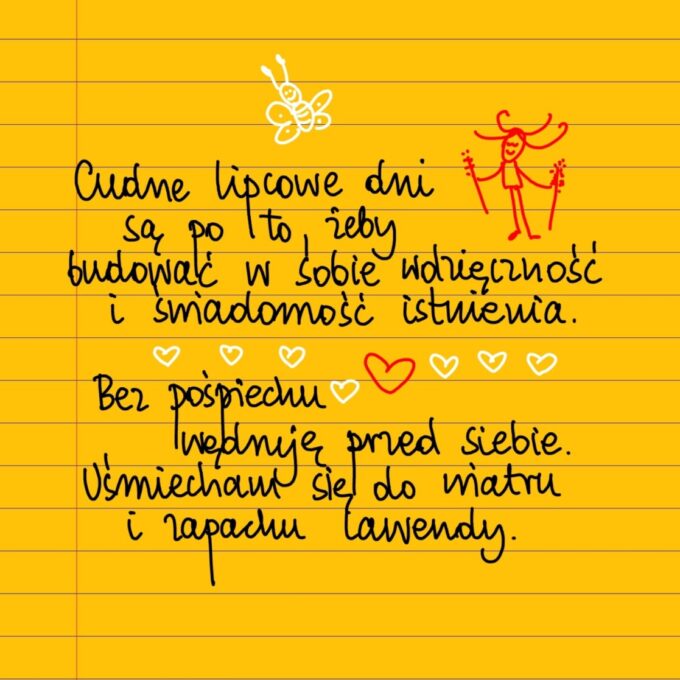 Cudne lipcowe dni
są po to, żeby
budować w sobie wdzięczność
i świadomość istnienia.
Bez pośpiechu
wędruję przed siebie.
Uśmiecham się do wiatru
i zapachu lawendy.